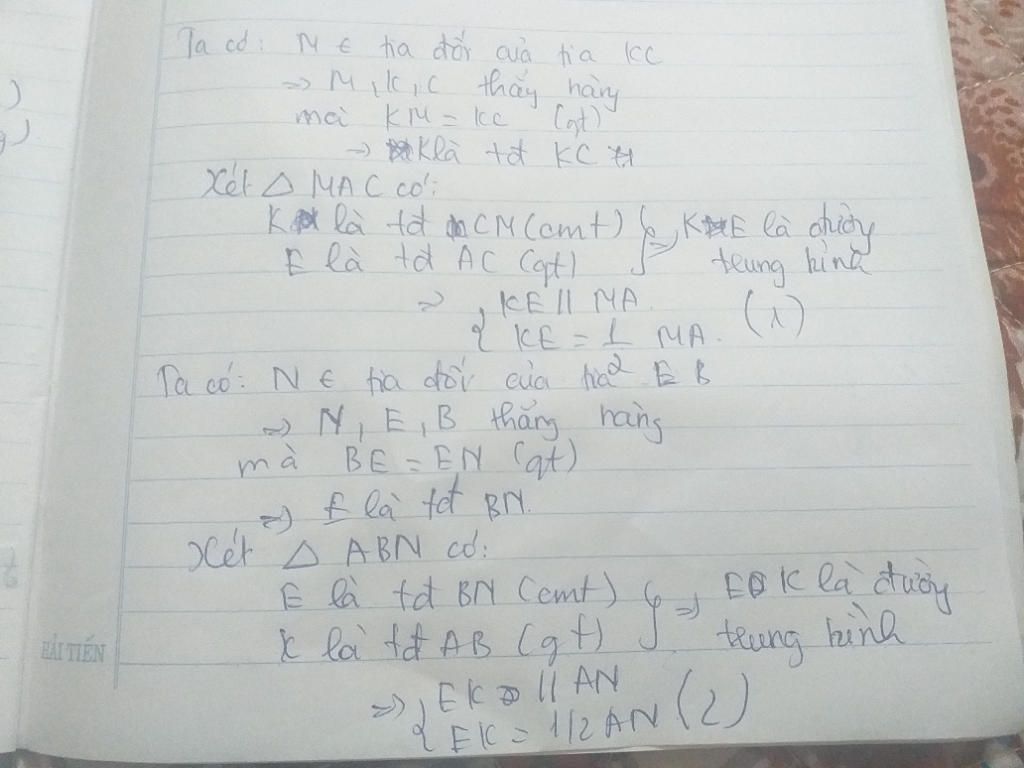 )
g)
Ta có: M ∈ tia đối của tia KC
=> M, K, C thẳng hàng
mà KM = KC (gt)
-> K là tđ KC
Xét △ MAC có:
K là tđ CM (cmt) } => KE là đường
E là tđ AC (gt) trung bình
=> { KE // MA
KE = 1/2 MA. (1)
Ta có: N ∈ tia đối của tia EB
=> N, E, B thẳng hàng
mà BE = EN (gt)
=> E là tđ BN.
Xét △ ABN có:
E là tđ BN (cmt) } => EK là đường
K là tđ AB (gt) trung bình
HẢI TIẾN
=> { EK // AN
EK = 1/2 AN (2)